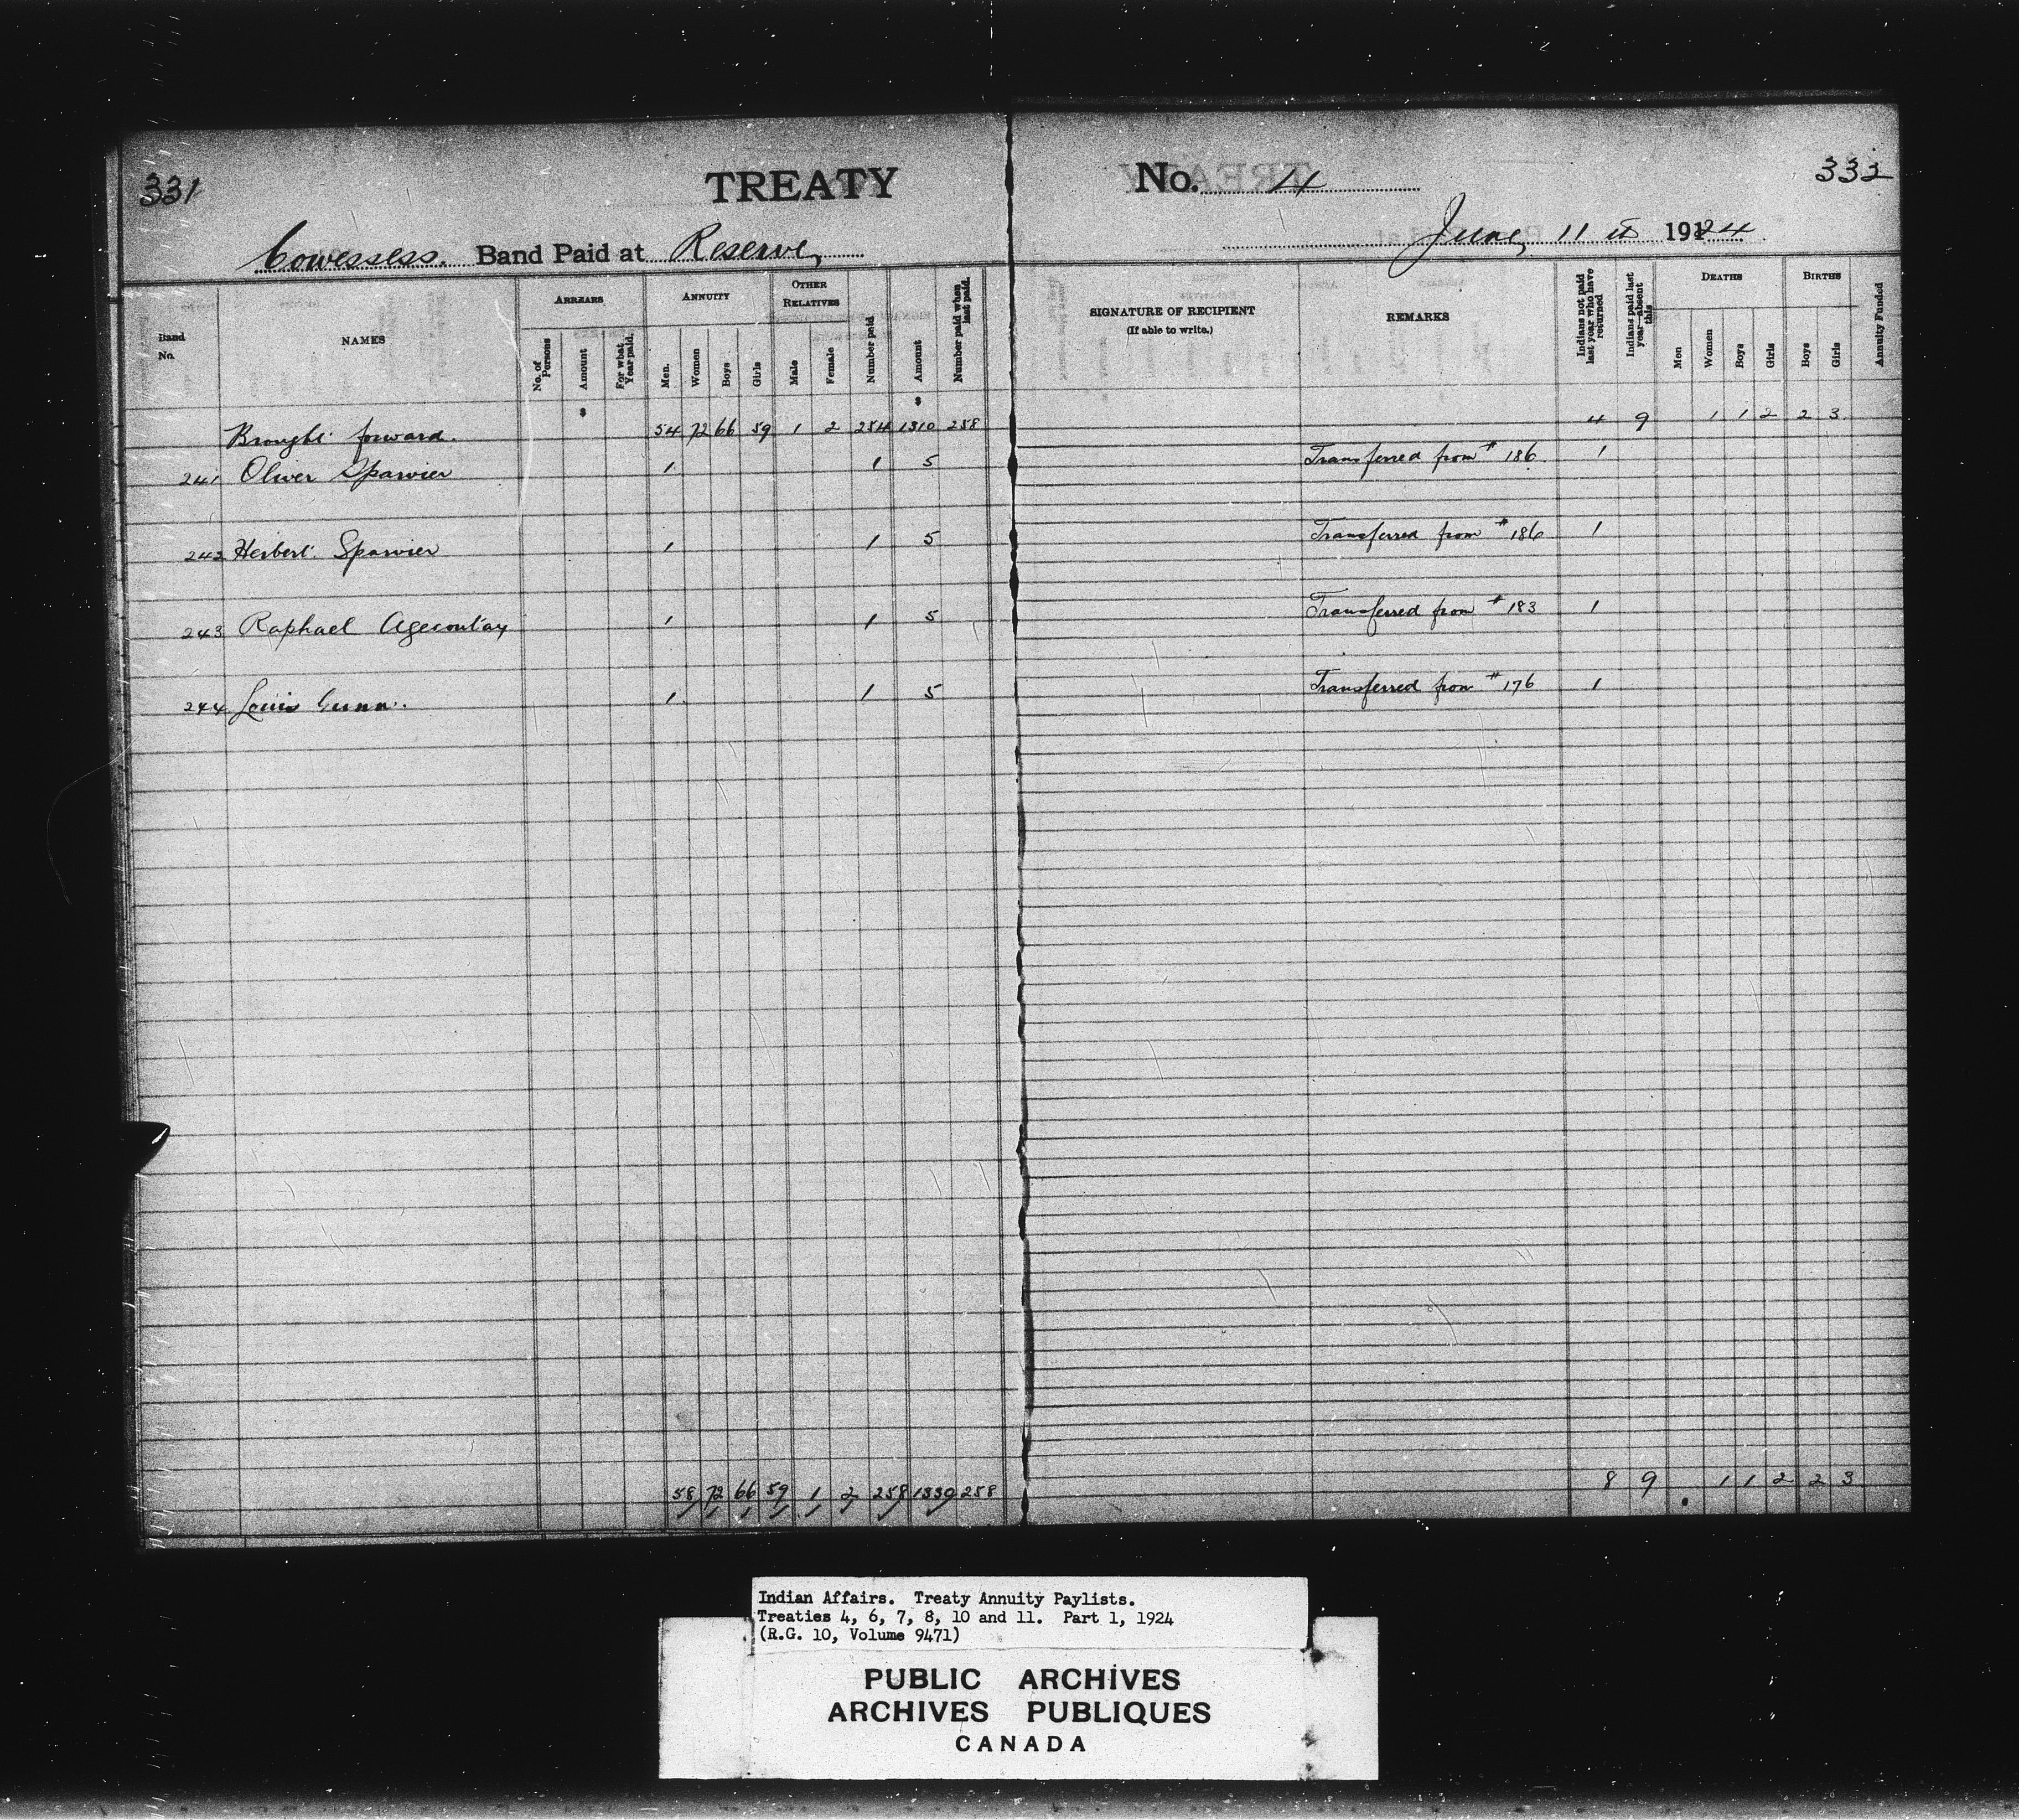 331
TREATY No. 4
332
Cowessess. Band Paid at Reserve, June, 11th 1924
Band No.
NAMES
ARREARS
No. of Persons
Amount
For what Year paid.
ANNUITY
Men.
Women
Boys
Girls
OTHER RELATIVES
Male
Female
Number paid
Amount
Number paid when last paid.
SIGNATURE OF RECIPIENT
(If able to write.)
REMARKS
Indians not paid last year who have returned
Indians paid last year—absent this
DEATHS
Men
Women
Boys
Girls
BIRTHS
Boys
Girls
Annuity Funded
$ $
Brought forward. 54 72 66 59 1 2 254 1310 258 4 9 1 1 2 2 3
241 Oliver Sparvier 1 1 5 Transferred from #186 1
242 Herbert Sparvier 1 1 5 Transferred from #186 1
243 Raphael Agecoutay 1 1 5 Transferred from #183 1
244 Louis Gunn. 1 1 5 Transferred from #176 1
58 72 66 59 1 2 258 1330 258 8 9 1 1 2 2 3
Indian Affairs. Treaty Annuity Paylists.
Treaties 4, 6, 7, 8, 10 and 11. Part 1, 1924
(R.G. 10, Volume 9471)
PUBLIC ARCHIVES
ARCHIVES PUBLIQUES
CANADA